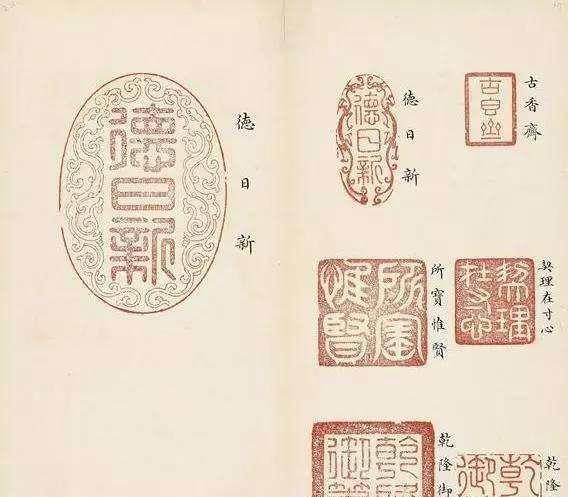 古香齋
古香齋
德日新
德日新
契理在寸心
契理在寸心
所寶惟賢
所寶惟賢
乾隆
乾
御
乾隆御
乾隆
御
德日新
德日新